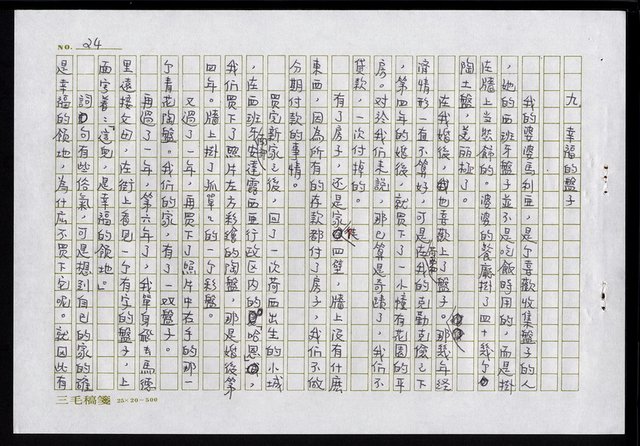 NO. 24
九 幸福的盤子
我的婆婆馬利亞，是个喜歡收集盤子的人
，她的西班牙盤子並不是吃飯時用的，而是掛
在牆上当裝飾的。婆婆的餐廳掛了四十幾个
陶土盤，美麗極了。
在我婚後，我也喜歡上了盤子。那幾年經
濟情形一直不算好，可是在我的克勤克儉之下
，第四年的婚後，就買下了一小幢有花園的平
房。对於我们來說，那已算是奇蹟了，我们不
貸款，一次付掉的。
有了房子，还是家徒四壁，牆上沒有什麼
東西，因為所有的存款都付了房子，我们不做
分期付款的事情。
買完新家之後，回了一次荷西出生的小城
，在西班牙南部安達露西亞行政区内的「哈恩」，
我们買下了照片左方彩繪的陶盤，那是婚後第
四年。牆上掛了孤單的一个彩盤。
又過了一年，再買下了照片中右手的那一
个青花陶盤。我们的家，有了一双盤子。
再過了一年，第六年了，我單身飛去馬德
里遠接父母，在街上看見一个有字的盤子，上
面寫著：「這兒，是幸福的領地。」
詞句有些俗氣，可是想到自己的家的確
是幸福的領地，為什麼不買下它呢。就因此有
三毛稿箋 25×20=500